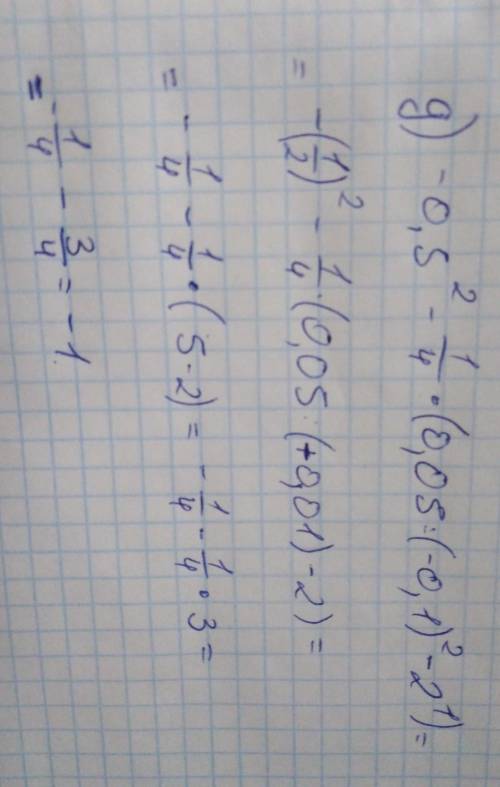 g) -0,5² - 1/4 · (0,05 : (-0,1)² - 2¹) =
= -(1/2)² - 1/4 · (0,05 : (+0,01) - 2) =
= - 1/4 - 1/4 · (5 - 2) = - 1/4 - 1/4 · 3 =
= - 1/4 - 3/4 = -1